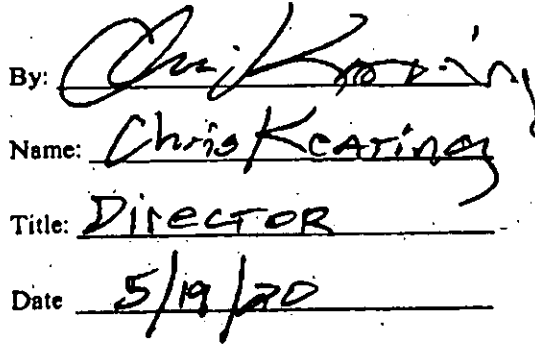 By: Chris Keating
Name: Chris Keating
Title: Director
Date 5/19/20